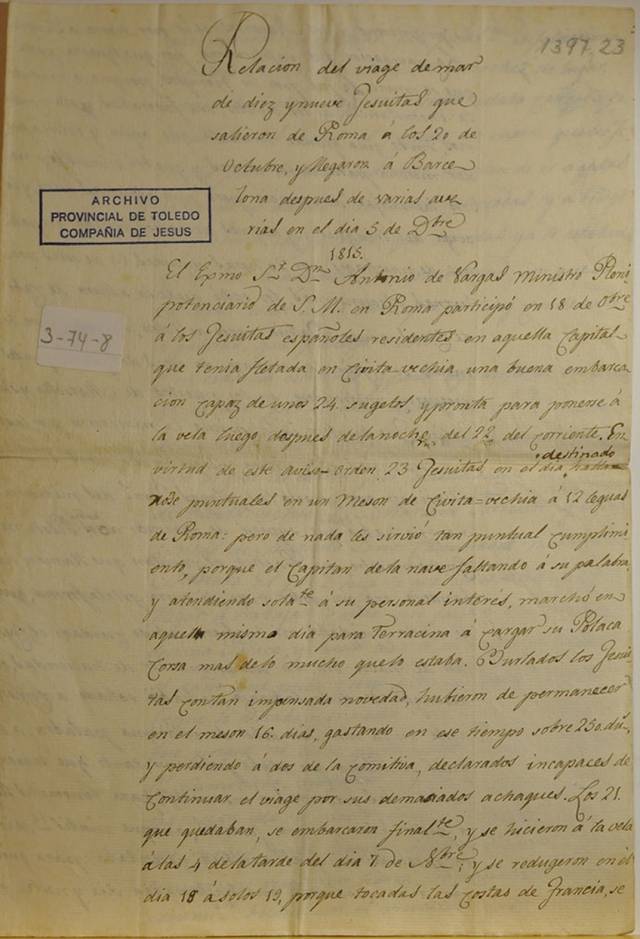 1397.23
Relacion del viage de mar
de diez y nueve Jesuitas que
salieron de Roma á los 20 de
Octubre, y llegaron á Barce-
lona despues de varias ave-
rias en el dia 5 de Dbre
1815.
ARCHIVO
PROVINCIAL DE TOLEDO
COMPAÑIA DE JESUS
3-74-8
El Exmo Sr. Dn. Antonio de Vargas Ministro Pleni
potenciario de S. M. en Roma participó en 18 de Obre
á los Jesuitas españoles residentes en aquella Capital
que tenia fletada en Civita-vechia una buena embarca
cion capaz de unos 24 sugetos, y pronta para ponerse á
la vela luego despues de la noche del 22 del corriente. En
virtud de este aviso-orden 23 Jesuitas en el dia destinado
puntuales en un Meson de Civita-vechia á 12 leguas
de Roma: pero de nada les sirvió tan puntual cumplimi
ento, porque el Capitan de la nave faltando á su palabra,
y atendiendo solate á su personal interés, marchó en
aquella mismo dia para Terracina á cargar su Polaca
Corsa mas de lo mucho que lo estaba. Burlados los Jesui
tas con tan impensada novedad, hubieron de permanecer
en el meson 16 dias, gastando en ese tiempo sobre 230 dus,
y perdiendo á dos de la comitiva, declarados incapaces de
continuar el viage por sus demasiados achaques. Los 21
que quedaban, se embarcaron finalte, y se hicieron á la vela
á las 4 de la tarde del dia 7 de Nbre, y se redugeron en el
dia 18 á solos 19, porque tocadas las costas de Francia, se